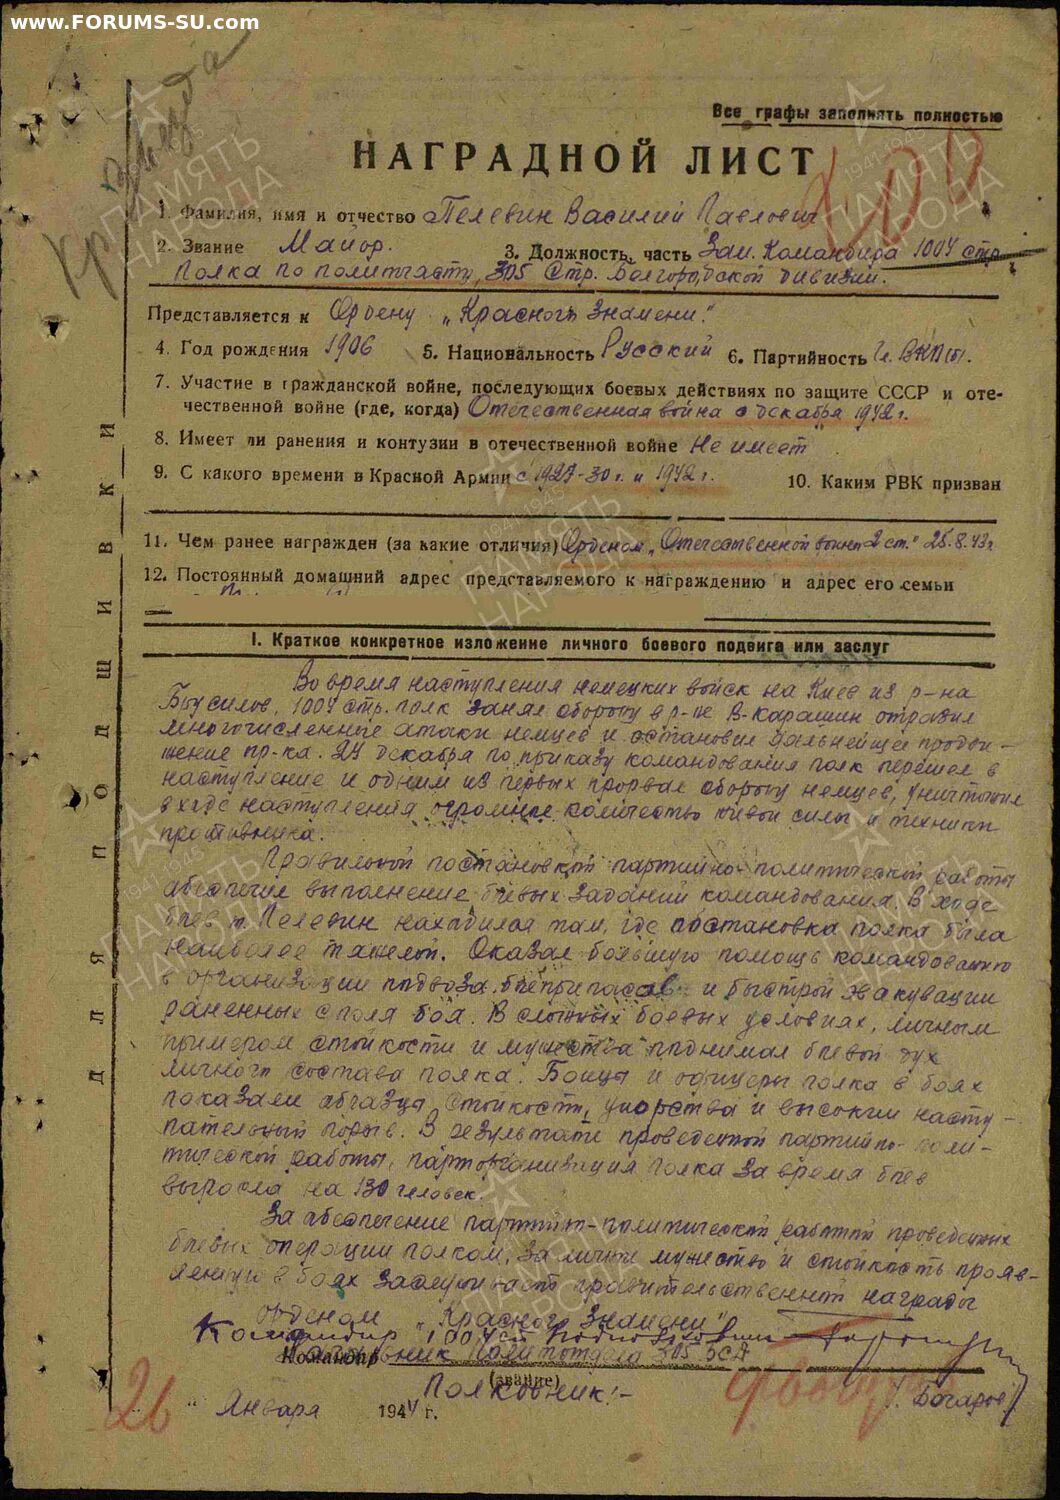 www.FORUMS-SU.com
Все графы заполнять полностью
НАГРАДНОЙ ЛИСТ
1. Фамилия, имя и отчество Пелевин Василий Павлович
2. Звание Майор. 3. Должность, часть Зам. Командира 1004 стр.
Полка по политчасти, 305 Стр. Белгородской дивизии.
Представляется к Ордену „Красного Знамени."
4. Год рождения 1906 5. Национальность Русский 6. Партийность Чл. ВКП(б).
7. Участие в гражданской войне, последующих боевых действиях по защите СССР и оте-
чественной войне (где, когда) Отечественная война с декабря 1942 г.
8. Имеет ли ранения и контузии в отечественной войне Не имеет
9. С какого времени в Красной Армии с 1927-30 г. и 1942 г. 10. Каким РВК призван
11. Чем ранее награжден (за какие отличия) Орденом „Отечественной войны 2 ст." 25.8.43 г.
12. Постоянный домашний адрес представляемого к награждению и адрес его семьи
I. Краткое конкретное изложение личного боевого подвига или заслуг
Во время наступления немецких войск на Киев из р-на
Брусилов, 1004 стр. полк занял оборону в р-не В-Карашин отразил
многочисленные атаки немцев и остановил дальнейшее продви-
жение пр-ка. 24 декабря по приказу командования полк перешел в
наступление и одним из первых прорвал оборону немцев, уничтожив
в ходе наступления огромное количество живой силы и техники
противника.
Правильной постановкой партийно-политической работы
обеспечил выполнение боевых заданий командования. В ходе
боев т. Пелевин находился там, где постановка полка была
наиболее тяжелой. Оказал большую помощь командованию
в организации подвоза боеприпасов и быстрой эвакуации
раненных с поля боя. В сложных боевых условиях, личным
примером стойкости и мужества поднимал боевой дух
личного состава полка. Бойцы и офицеры полка в боях
показали образцы стойкости, упорства и высокий насту-
пательный порыв. В результате проведенной партийно-поли-
тической работы, парторганизация полка за время боев
выросла на 130 человек.
За обеспечение партийно-политической работой проведенных
боевых операции полком, за личное мужество и стойкость прояв-
ленную в боях заслуживает правительственной награды
орденом „Красного Знамени"
Командир 1004 сп Подполковник
Командир Начальник Политотдела 305 БСД
(звание)
Полковник:-
26 " Января 1944 г.
ДЛЯ ПОДШИВКИ
ПАМЯТЬ НАРОДА
1941-1945